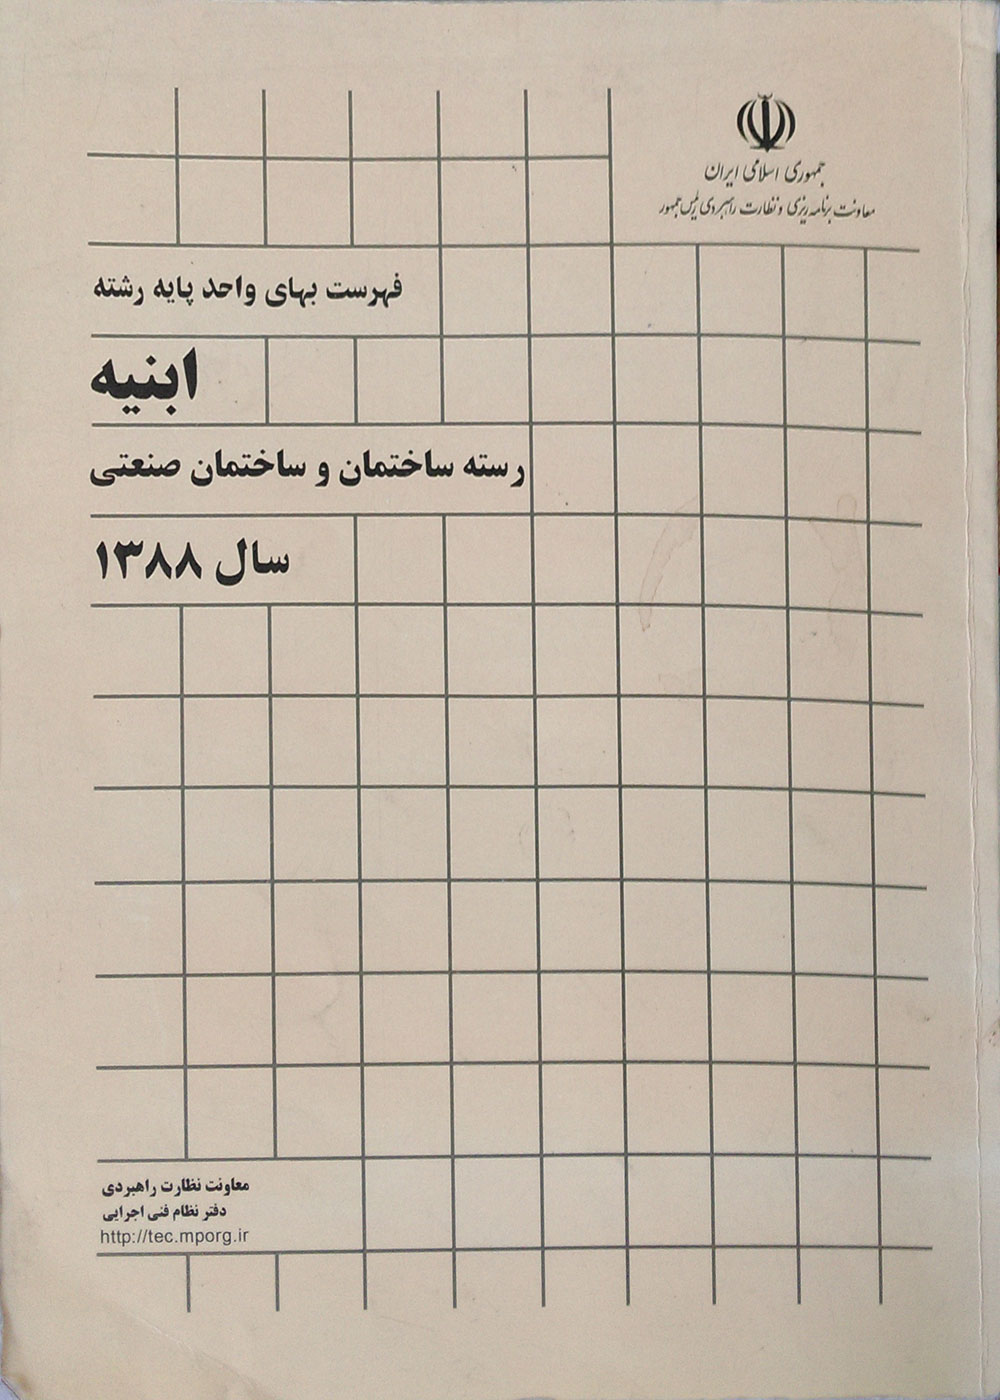 جمهوری اسلامی ایران
معاونت برنامه‌ریزی و نظارت راهبردی رئیس جمهور
فهرست بهای واحد پایه رشته
ابنیه
رسته ساختمان و ساختمان صنعتی
سال ۱۳۸۸
معاونت نظارت راهبردی
دفتر نظام فنی اجرایی
http://tec.mporg.ir